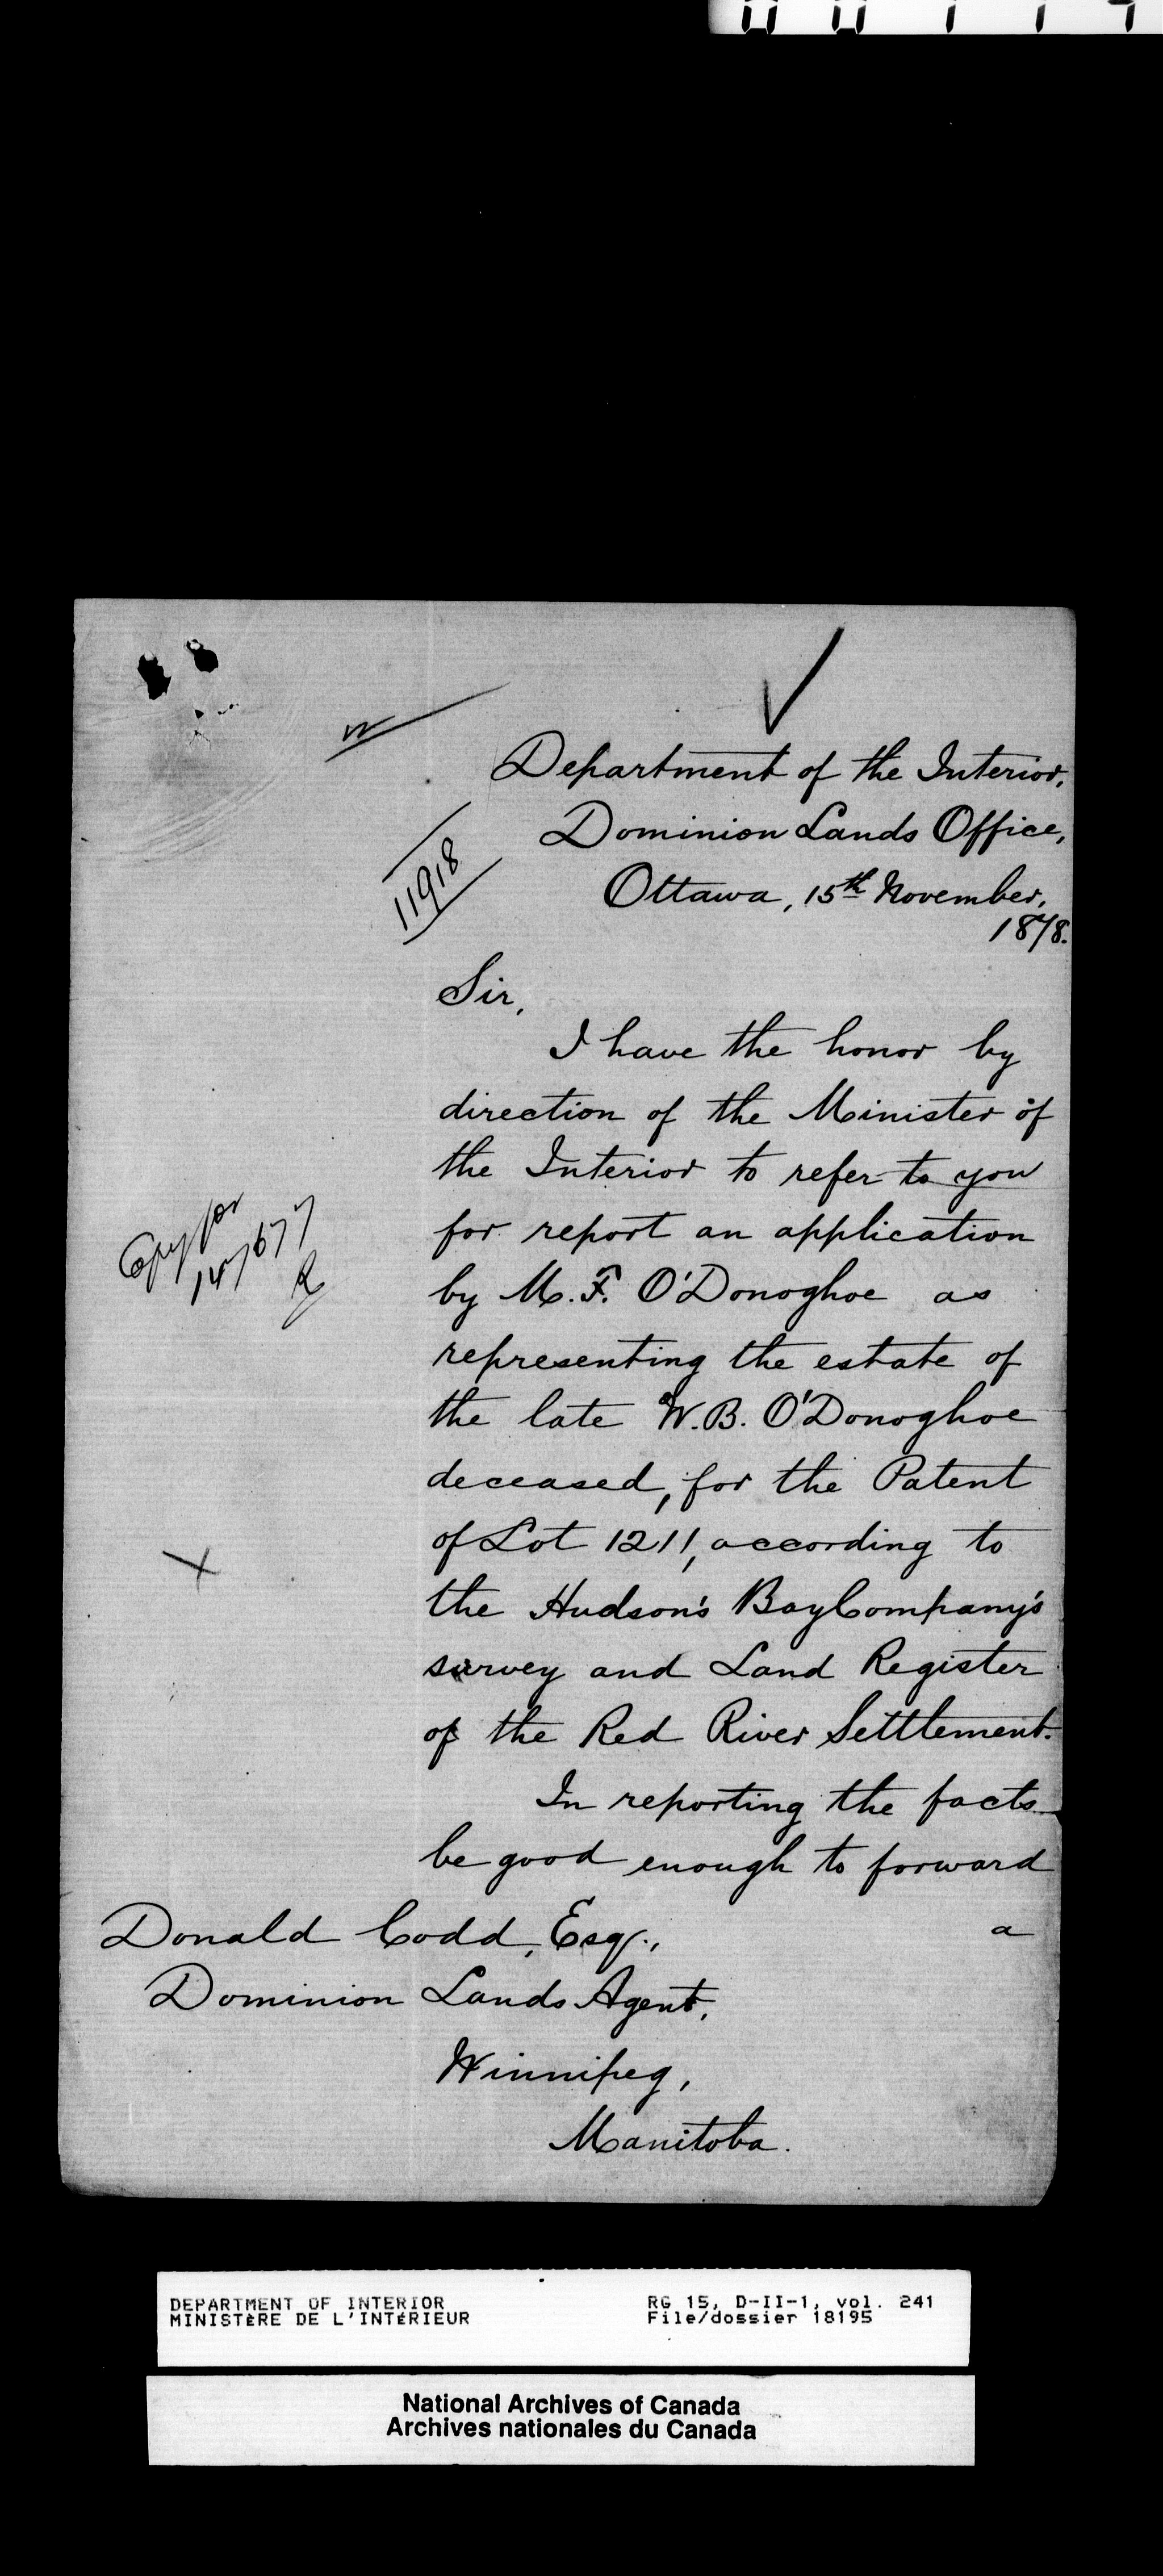 Department of the Interior,
Dominion Lands Office,
Ottawa, 15th November,
1878.
11918
Sir,
I have the honor by
direction of the Minister of
the Interior to refer to you
for report an application
by M. F. O'Donoghoe as
representing the estate of
the late W. B. O'Donoghoe
deceased, for the Patent
of Lot 1211, according to
the Hudson's Bay Company's
survey and Land Register
of the Red River Settlement.
In reporting the facts
be good enough to forward
a
Donald Codd, Esq.,
Dominion Lands Agent,
Winnipeg,
Manitoba.
DEPARTMENT OF INTERIOR
MINISTÈRE DE L'INTÉRIEUR
RG 15, D-II-1, vol. 241
File/dossier 18195
National Archives of Canada
Archives nationales du Canada